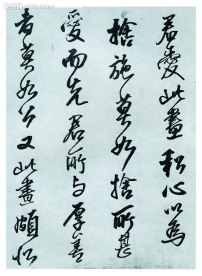 君愛此畫私心以為
捨施莫如捨所甚
愛而先君所與厚善
者莫如公又此畫頗似